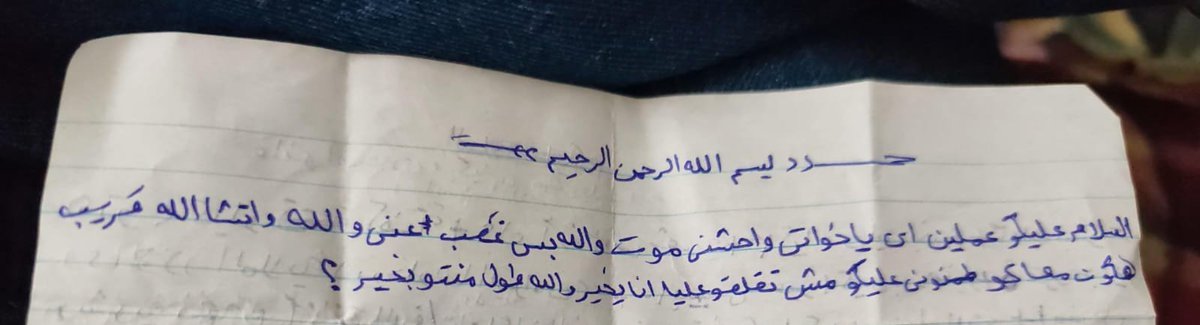 بسم الله الرحمن الرحيم
السلام عليكو عملين اى ياخواتى واحشنى موت والله بس غصب عنى والله وانشا الله قريب
هكون معاكو طمنونى عليكو مش تقلقو عليا انا بخير والله طول منتو بخير ؟